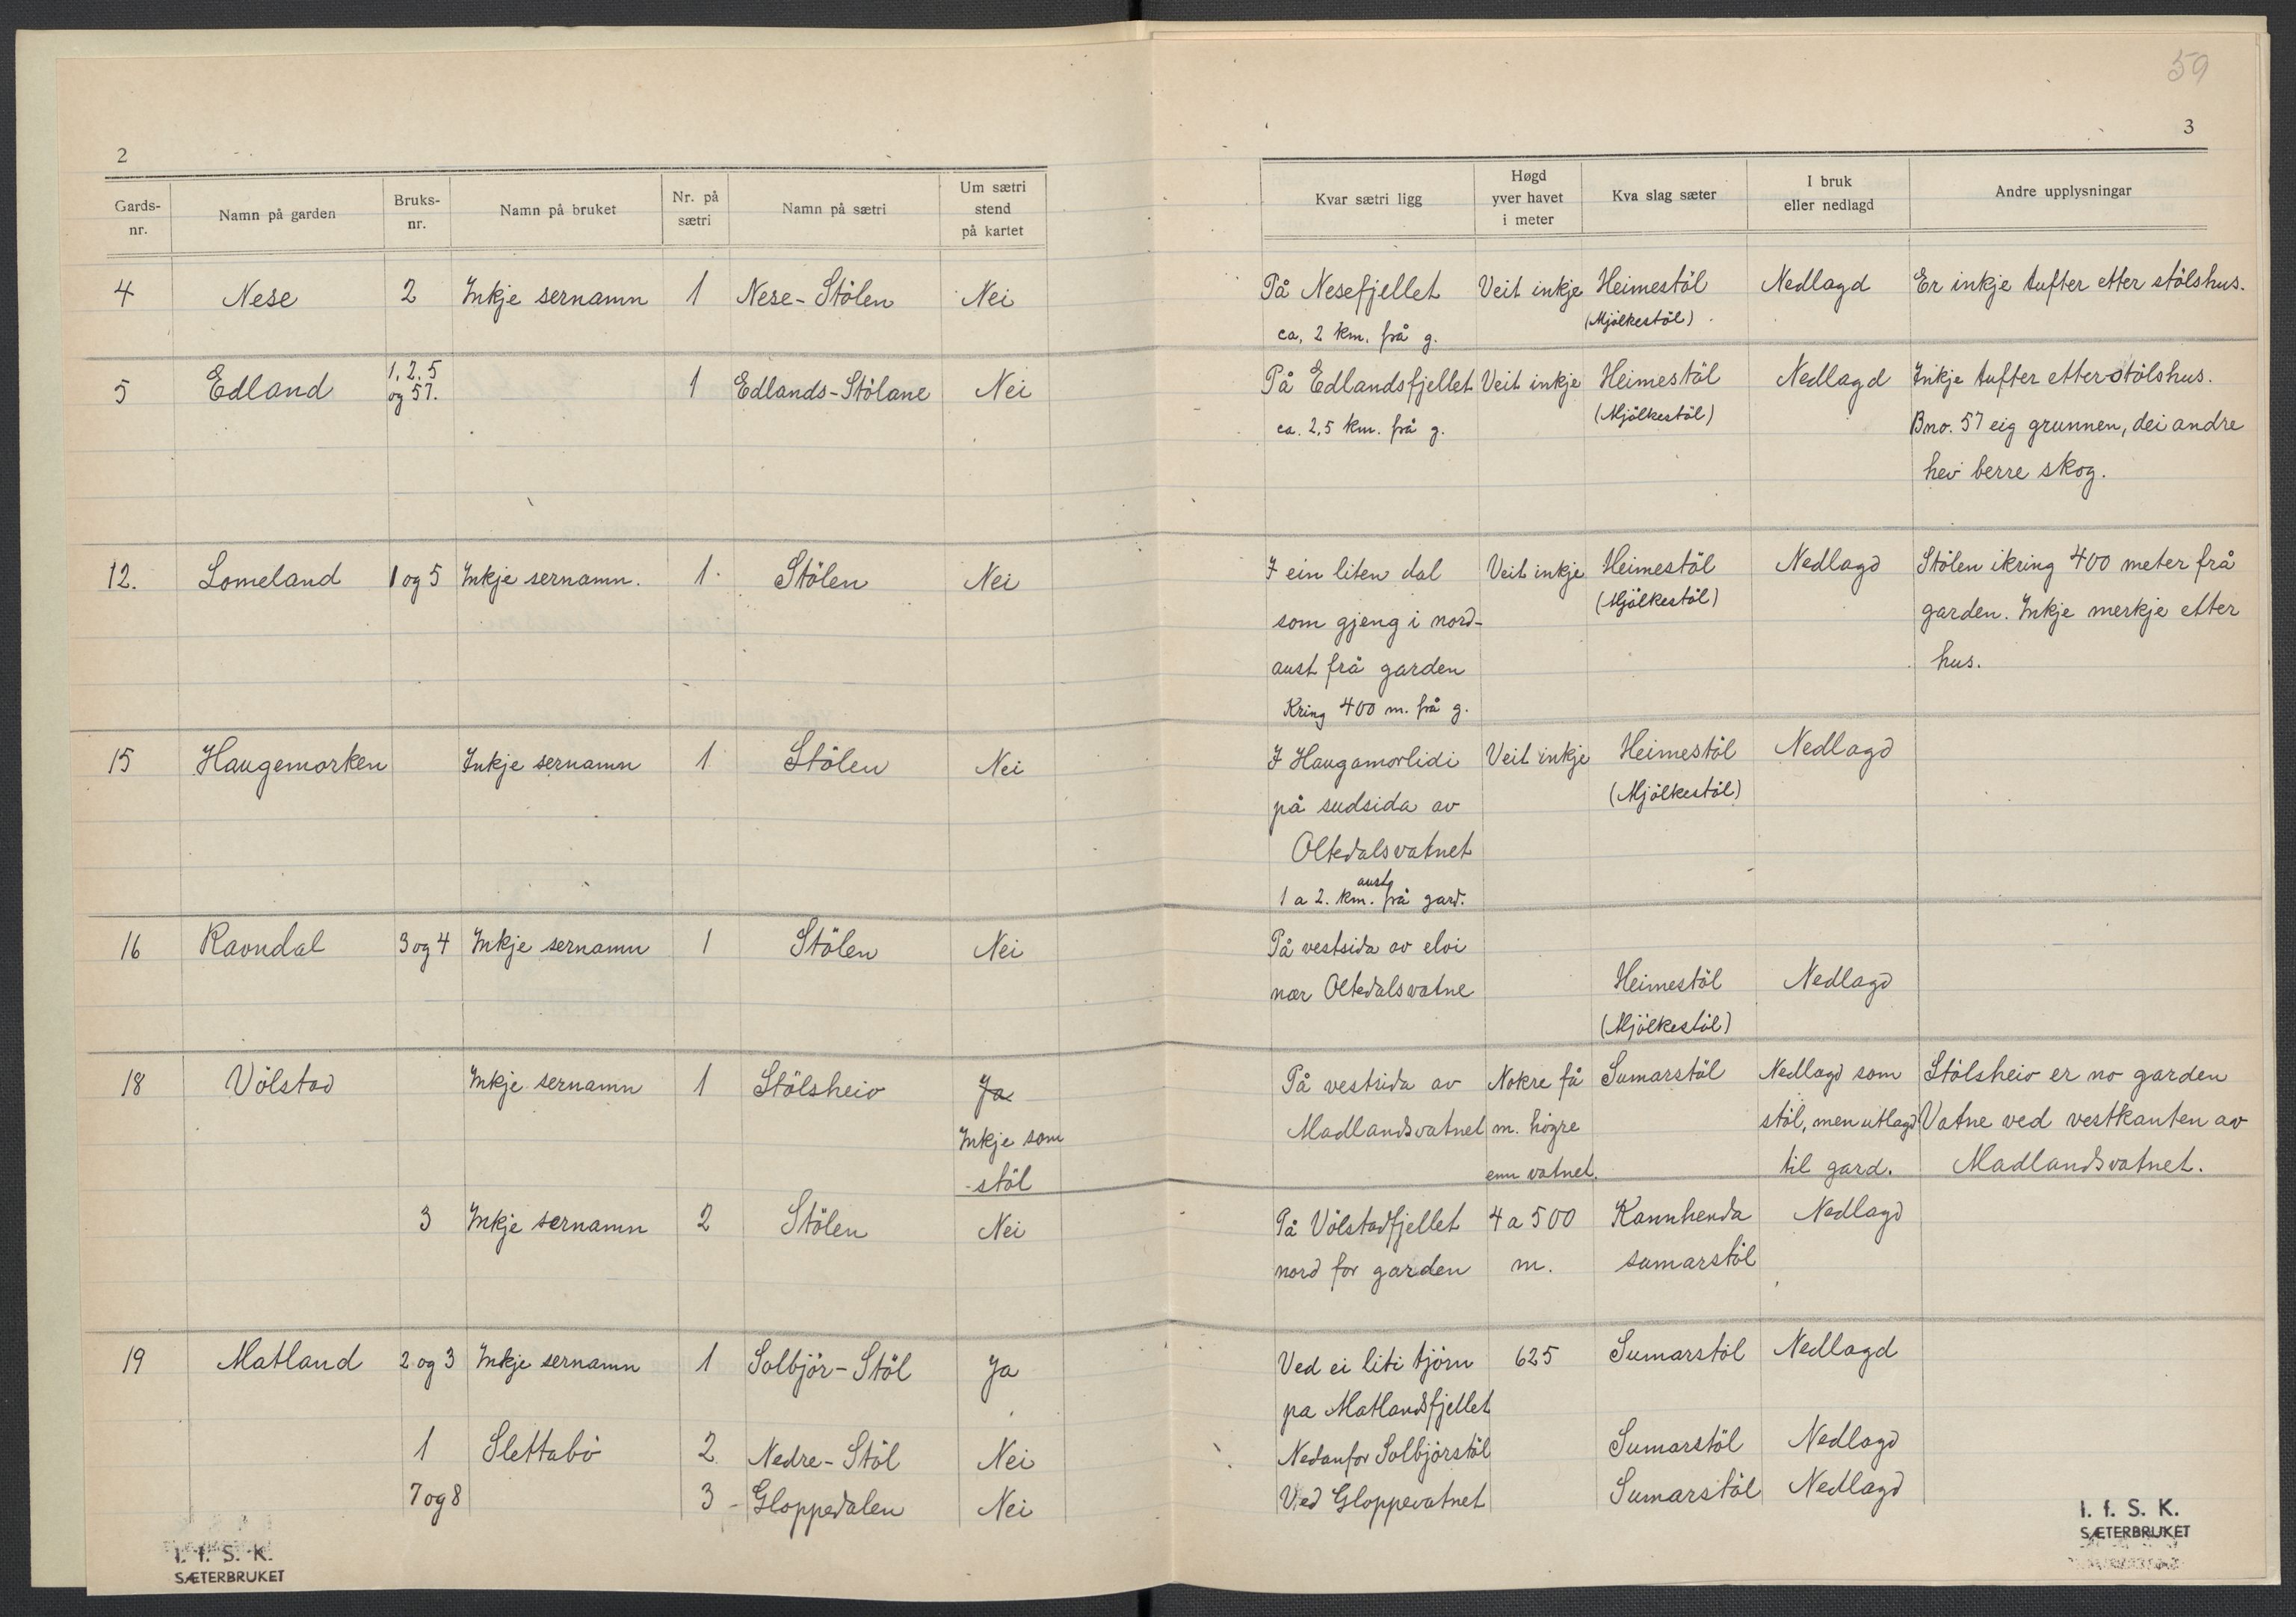 59
2
3
Gards-nr. Namn på garden Bruks-nr. Namn på bruket Nr. på sætri Namn på sætri Um sætri stend på kartet Kvar sætri ligg Høgd yver havet i meter Kva slag sæter I bruk eller nedlagd Andre upplysningar
4 Nese 2 Inkje sernamn 1 Nese-Stölen Nei På Nesefjellet Veit inkje Heimestöl Nedlagd Er inkje tufter etter stölshus.
ca. 2 km. frå g. (Mjölkestöl)
5 Edland 1, 2, 5 og 57. 1 Edlands-Stölane Nei På Edlandsfjellet Veit inkje Heimestöl Nedlagd Inkje tufter etter stölshus.
ca. 2,5 km. frå g. (Mjölkestöl) Bno. 57 eig grunnen, dei andre
hev berre skog.
12. Lomeland 1 og 5 Inkje sernamn. 1 Stölen Nei I ein liten dal Veit inkje Heimestöl Nedlagd Stölen ikring 400 meter frå
som gjeng i nord- (Mjölkestöl) garden. Inkje merkje etter
aust frå garden hus.
Kring 400 m. frå g.
15 Haugemorken Inkje sernamn 1 Stölen Nei I Haugamorlidi Veit inkje Heimestöl Nedlagd
på sudsida av (Mjölkestöl)
Oltedalsvatnet
1 a 2. km. aust frå gard.
16 Ravndal 3 og 4 Inkje sernamn 1 Stölen Nei På vestsida av elvi
nær Oltedalsvatne Heimestöl Nedlagd
(Mjölkestöl)
18 Völstad Inkje sernamn 1 Stölsheiv Ja På vestsida av Nokre få Sumarstöl Nedlagd som Stölsheiv er no garden
Inkje som Madlandsvatnet m. högre stöl, men utlagd Vatne ved vestkanten av
stöl enn vatnet. til gard. Madlandsvatnet.
3 Inkje sernamn 2 Stölen Nei På Völstadfjellet 4 a 500 Kannhenda Nedlagd
nord for garden m. sumarstöl
19 Matland 2 og 3 Inkje sernamn 1 Solbjör-Stöl Ja Ved ei liti tjörn 625 Sumarstöl Nedlagd
pa Matlandsfjellet
1 Slettabö 2. Nedre-Stöl Nei Nedanfor Solbjörstöl Sumarstöl Nedlagd
7 og 8 3 - Gloppedalen Nei Ved Gloppevatnet Sumarstöl Nedlagd
I. f. S. K.
SÆTERBRUKET
I. f. S. K.
SÆTERBRUKET